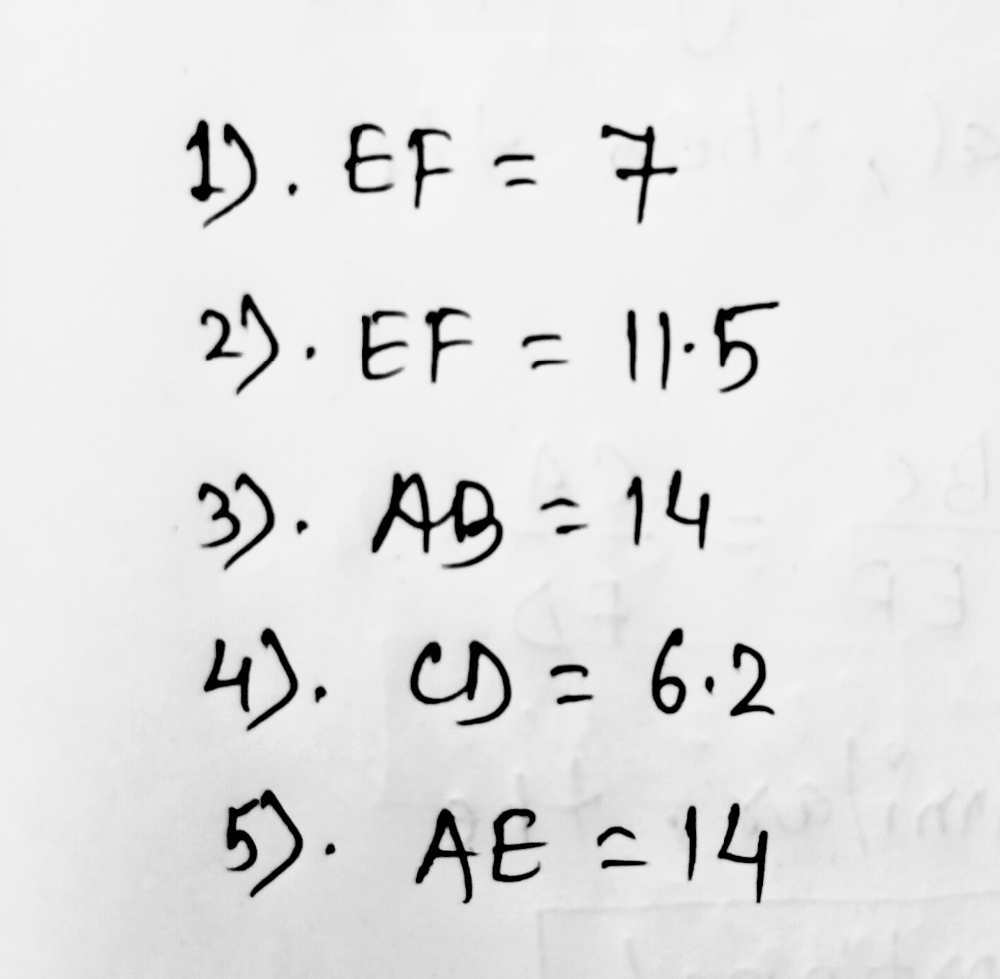 1). EF = 7
2). EF = 11.5
3). AB = 14
4). CD = 6.2
5). AE = 14